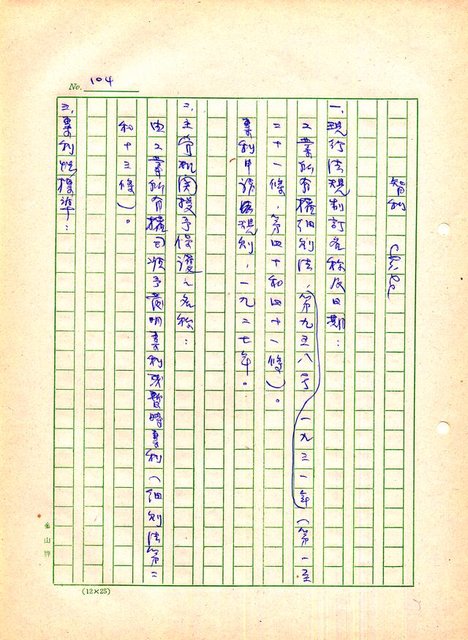 No. 104
智利 Chile
一、現行法規制訂名稱及日期：
工業所有權細則法，第九五八号，一九三一年（第一至
二十一條，第四十和四十一條）。
專利申請規則，一九二七年。
二、主管机関授予保護之名称：
由工業所有權司頒予發明專利或暫時專利（細則法第二
和十三條）。
三、專利性標準：
金山牌
(12×25)